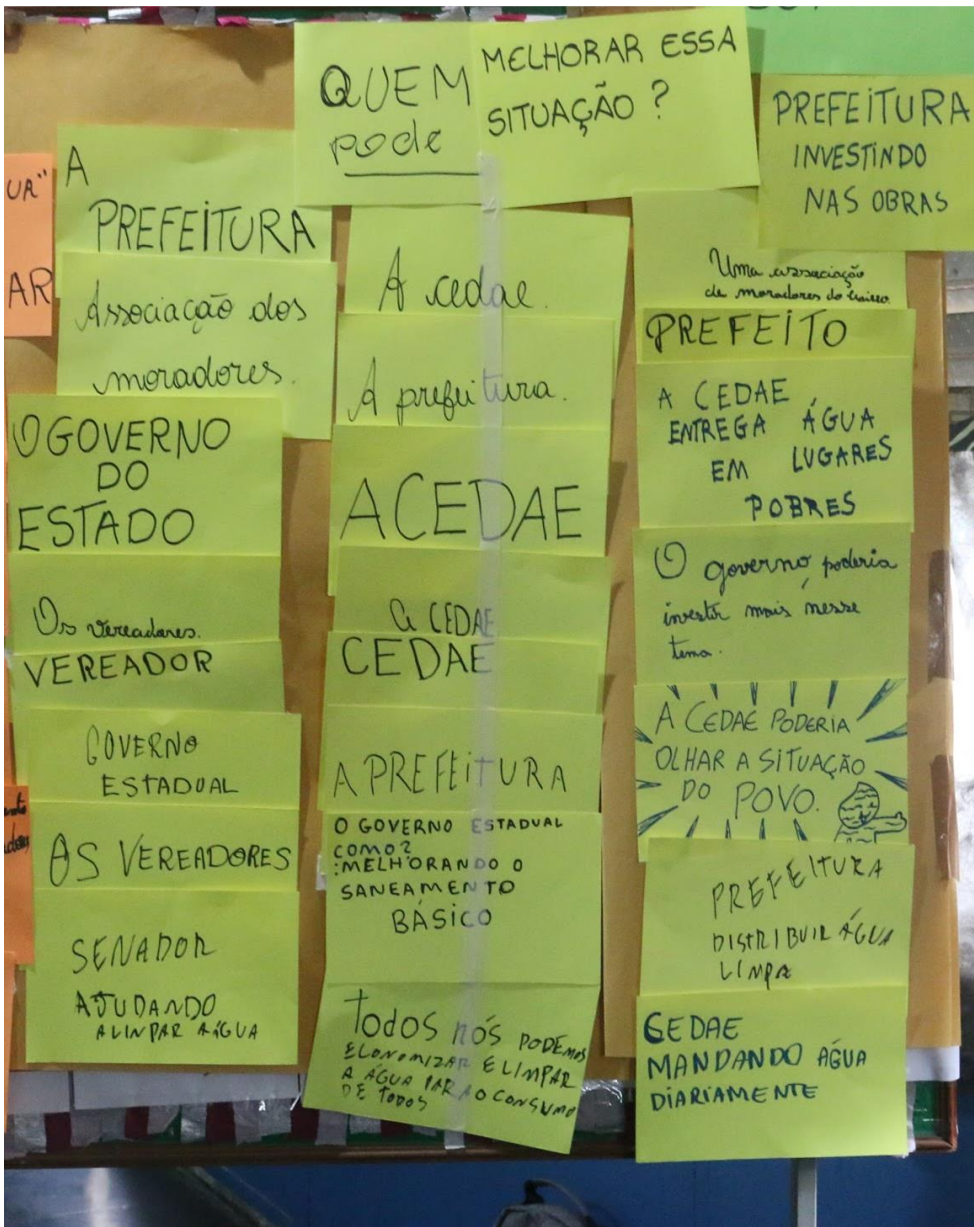 QUEM
pode
MELHORAR ESSA
SITUAÇÃO ?
UA"
AR
A
PREFEITURA
Associação dos
moradores.
O GOVERNO
DO
ESTADO
Os vereadores.
VEREADOR
GOVERNO
ESTADUAL
OS VEREADORES
SENADOR
AJUDANDO
A LINPAR A ÁGUA
A cedae.
A prefeitura.
A CEDAE
a CEDAE
CEDAE
A PREFEITURA
O GOVERNO ESTADUAL
COMO?
:MELHORANDO O
SANEAMENTO
BÁSICO
Todos nós PODEMOS
ECONOMIZAR E LIMPAR
A ÁGUA PARA O CONSUMO
DE TODOS
PREFEITURA
INVESTINDO
NAS OBRAS
Uma associação
de moradores do bairro.
PREFEITO
A CEDAE
ENTREGA ÁGUA
EM LUGARES
POBRES
O governo poderia
investir mais nesse
tema.
A CEDAE PODERIA
OLHAR A SITUAÇÃO
DO POVO.
PREFEITURA
DISTRIBUIR ÁGUA
LIMPA
CEDAE
MANDANDO ÁGUA
DIARIAMENTE